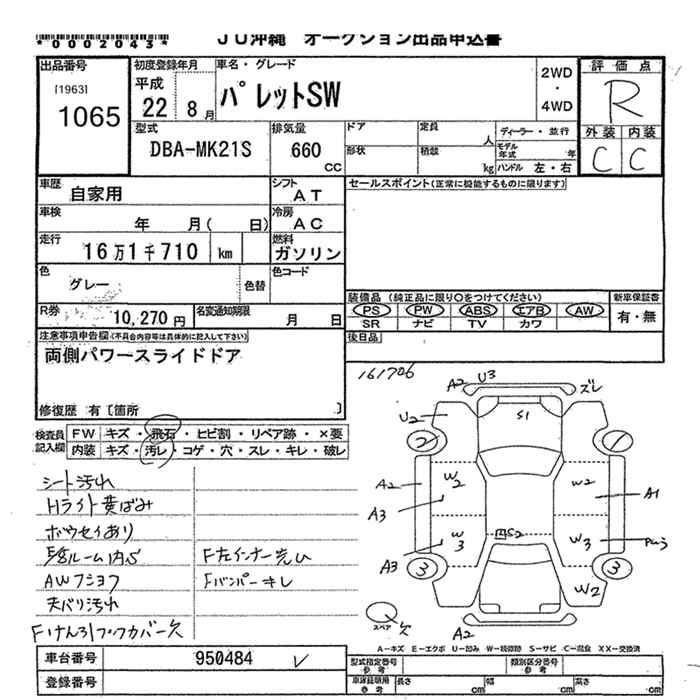 *0002043*
JU沖縄 オークション出品申込書
出品番号
[1963]
1065
初度登録年月
平成
22 8月
車名・グレード
パレットSW
2WD
・
4WD
評価点
R
外装 内装
C C
型式
DBA-MK21S
排気量
660
CC
ドア
形状
定員
人
積載
kg
ディーラー・並行
モデル年式 年
ハンドル 左・右
車歴
自家用
シフト
AT
セールスポイント(正常に機能するものに限ります)
車検
年 月( 日)
冷房
AC
走行
16万1千710 km
燃料
ガソリン
色
グレー
色替
色コード
R券
10,270円
名変通知期限
月 日
装備品 (純正品に限り○をつけてください)
PS PW ABS エアB AW
SR ナビ TV カワ
新車保証書
有・無
後日品
注意事項申告欄(不具合内容等は具体的に記入して下さい)
両側パワースライドドア
修復歴 有〔箇所 〕
検査員記入欄
FW キズ・飛石・ヒビ割・リペア跡・×要
内装 キズ・汚レ・コゲ・穴・スレ・キレ・破レ
シート汚れ
Hライト黄ばみ
ボウセイあり
AWフショク
天バリ汚れ
F左インナー
Fバンパーキレ
161706
A2 U3
ズレ
S1
U2
2
1
A2
W2
W2
A1
A3
W3
S2
W3
A3
3
3
W2
A2
スペア
欠
A-キズ E-エクボ U-凹み W-補修跡 S-サビ C-腐食 XX-交換済
車台番号
950484
登録番号
型式指定番号
参考
類別区分番号
参考
車庫証明用
参考
長さ cm 幅 cm 高さ cm